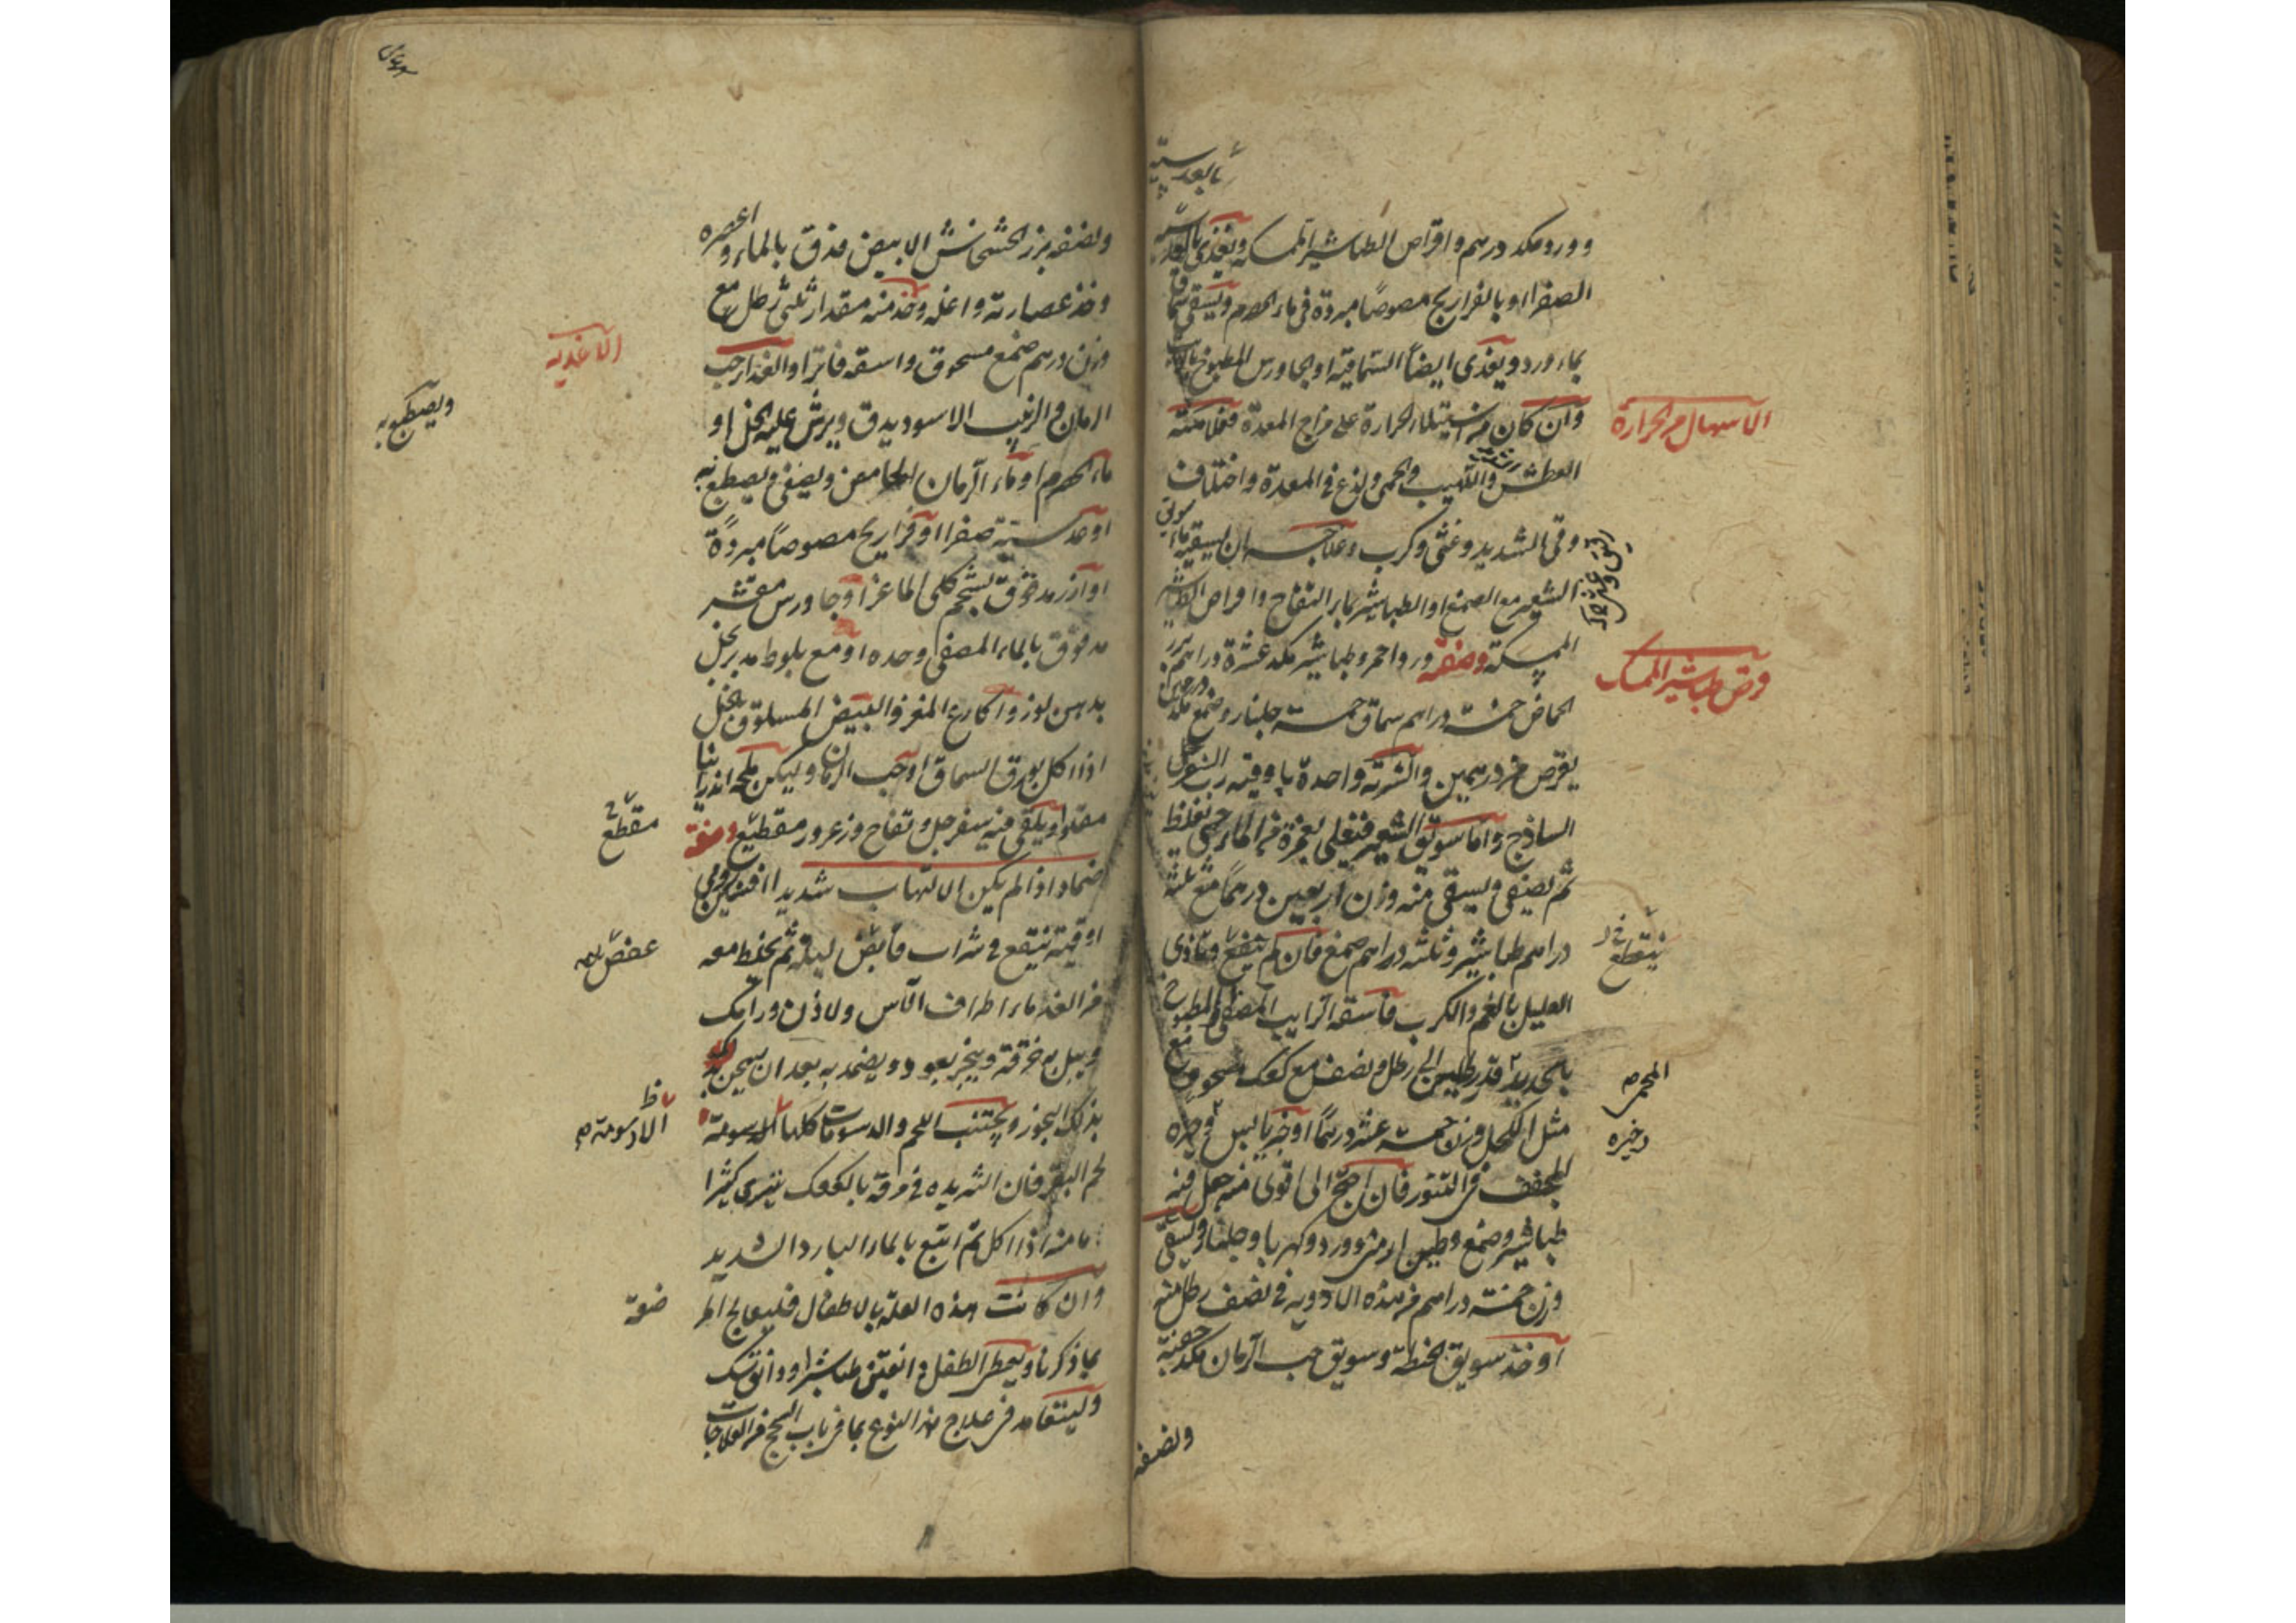 بالعدسية
وورد مكد درهم واقراص الطباشير الممسكه ويغذى بالعدسية
الصفرا او بالفراريج مصوصا مبردة فى ماء الحصرم ويسقى سماقا
بماء ورد ويغذى ايضا السماقية او بجاورس المطبوخ
الاسهال من الحرارة
وان كان من استيلاء الحرارة على مزاج المعدة فعلامته
العطش واللهيب والحمى ولذع فى المعدة واختلاف
وقى الشديد وغثى وكرب وعلاجه ان يسقيه ماء سويق
الشعير مع الصمغ او الطباشير بماء التفاح واقراص الطباشير
قرص طباشير الممسك
الممسكة وصفته ورد احمر وطباشير مكد عشرة دراهم بزر
الحماض خمسة دراهم سماق خمسة جلنار وصمغ مكد درهمين
يقرص من درهمين والشربة واحدة باوقية رب السفرجل
الساذج واما سويق الشعير فيغلى بغمزة من الماء حتى يغلظ
ثم يصفى ويسقى منه وزن اربعين درهما مع ثلثة
دراهم طباشير وثلثة دراهم صمغ فان لم ينفع وتاذى
العليل بالغم والكرب فاسقه الرايب المصفى المطبوخ
بالحديد قدر رطلين الى رطل ونصف مع كعك مسحوق
المحمى
مثل الكحل وزن خمسة عشر درهما او خبز يابس وخبزه
المجفف فى التنور فان احتج الى اقوى منه جعل فيه
طباشير وصمغ وطين ارمنى وورد وكهربا وجلنار ويسقى
وزن خمسة دراهم من هذه الادوية فى نصف رطل منه
او خذ سويق الحنطة وسويق حب الرمان مكد حفنة
ونصفه
ونصفه بزر الخشخاش الابيض فدق بالماء واعصره
وخذ عصارته واغله وخذ منه مقدار ثلثى رطل مع
الاغذيه
وزن درهم صمغ مسحوق واسقه فاترا والغذا حب
الرمان والزبيب الاسود يدق ويرش عليه الخل او
ويصطبغ به
ماء الحصرم او ماء الرمان الحامض ويصفى ويصطبغ به
او عدسية صفرا او فراريج مصوصا مبردة
او ارز مدقوق بشحم كلى الماعز او جاورس مقشر
مدقوق بالماء المصفى وحده او مع بلوط مدبر بخل
بدهن لوز واكارع المغز والبيض المسلوق بالخل
اذا اكل بورق السماق او حب الرمان وليكن ملحه اندرانيا
مقلوا ويلقى فيه سفرجل وتفاح وزعرور مقطع وصفة
مقطع
ضماد اذا لم يكن الالتهاب شديدا افسنتين رومى
اوقية ينقع فى شراب قابض ليلة ثم يخلط معه
عفص
من الغد ماء اطراف الآس ولاذن ورامك
ويبل به خرقة ويبخر بعود ويضمد به بعد ان يسخن
بذلك البخور ويجتنب اللحم والدسومات كلها الا دسومة
الا دسومة
لحم البقر فان الثريده فى مرقه بالكعك ينبرى كثيرا
ما منه اذا اكل ثم اتبع بالماء البارد الشديد
وان كانت هذه العلة بالاطفال فليعالج
بما ذكرنا ويعطى الطفل دانقين طباشير او دانق سك
وليتعاهد فى علاج هذا النوع بما فى باب السحج من العلاجات